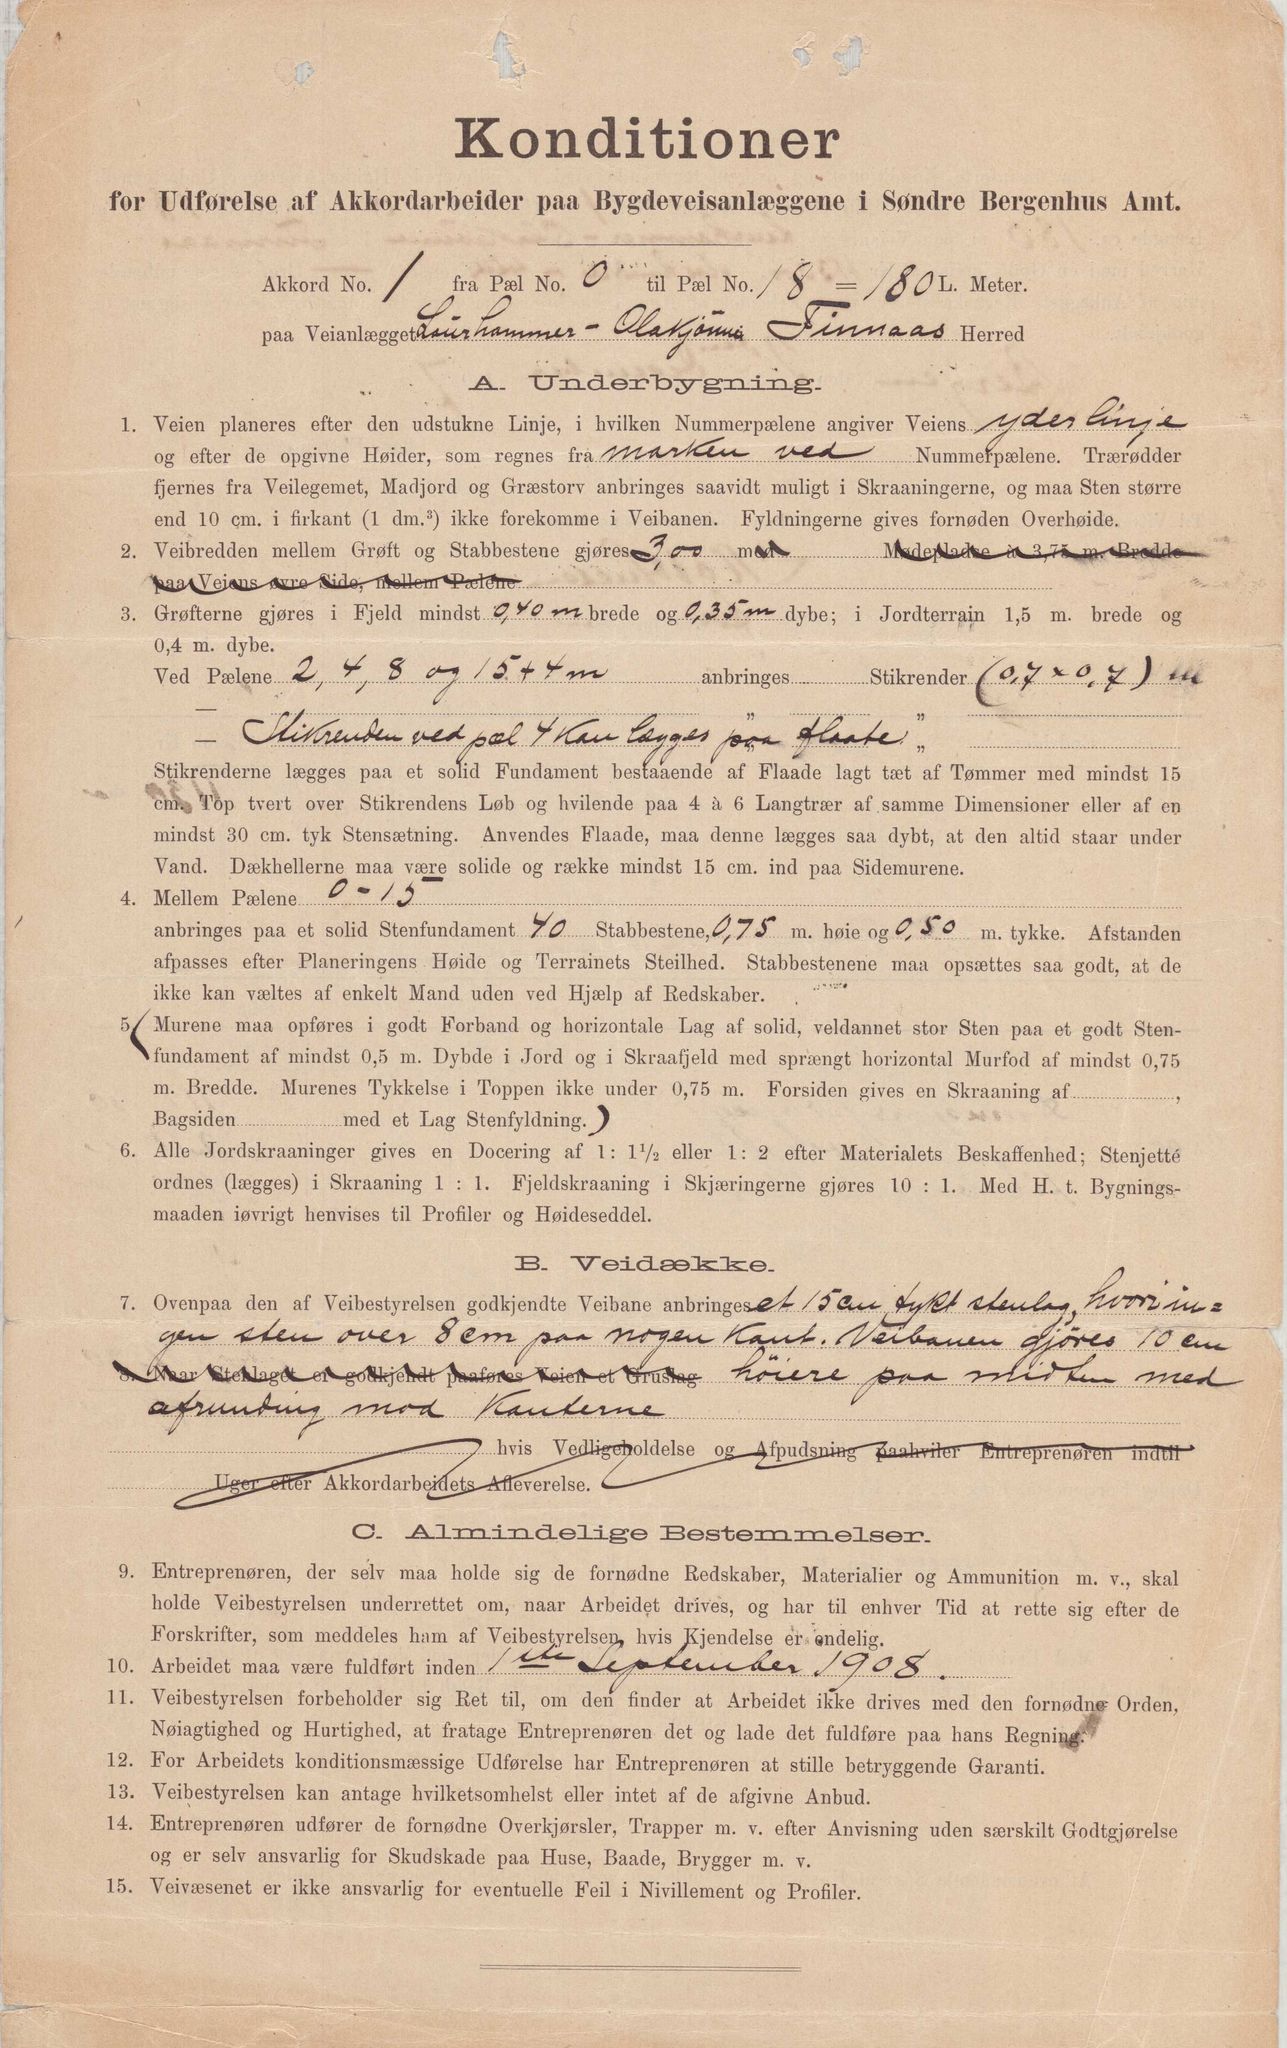 Konditioner
for Udførelse af Akkordarbeider paa Bygdeveisanlæggene i Søndre Bergenhus Amt.
Akkord No. 1 fra Pæl No. 0 til Pæl No. 18 = 180 L. Meter.
paa Veianlægget Finnaas Herred
A. Underbygning.
1. Veien planeres efter den udstukne Linje, i hvilken Nummerpælene angiver Veiens yderlinje
og efter de opgivne Høider, som regnes fra marken ved Nummerpælene. Trærødder
fjernes fra Veilegemet, Madjord og Græstorv anbringes saavidt muligt i Skraaningerne, og maa Sten større
end 10 cm. i firkant (1 dm.³) ikke forekomme i Veibanen. Fyldningerne gives fornøden Overhøide.
2. Veibredden mellem Grøft og Stabbestene gjøres 3,00 med Mødepladse à 3,75 m. Bredde
paa Veiens øvre Side, mellem Pælene
3. Grøfterne gjøres i Fjeld mindst 0,40 m brede og 0,35 m dybe; i Jordterrain 1,5 m. brede og
0,4 m. dybe.
Ved Pælene 2, 4, 8 og 15 + 4 m anbringes Stikrender (0,7 × 0,7) m
— Stikrenden ved pæl 4 kan lægges paa flaate „
Stikrenderne lægges paa et solid Fundament bestaaende af Flaade lagt tæt af Tømmer med mindst 15
cm. Top tvert over Stikrendens Løb og hvilende paa 4 à 6 Langtrær af samme Dimensioner eller af en
mindst 30 cm. tyk Stensætning. Anvendes Flaade, maa denne lægges saa dybt, at den altid staar under
Vand. Dækhellerne maa være solide og række mindst 15 cm. ind paa Sidemurene.
4. Mellem Pælene 0 - 15
anbringes paa et solid Stenfundament 40 Stabbestene, 0,75 m. høie og 0,50 m. tykke. Afstanden
afpasses efter Planeringens Høide og Terrainets Steilhed. Stabbestenene maa opsættes saa godt, at de
ikke kan væltes af enkelt Mand uden ved Hjælp af Redskaber.
5. (Murene maa opføres i godt Forband og horizontale Lag af solid, veldannet stor Sten paa et godt Sten-
fundament af mindst 0,5 m. Dybde i Jord og i Skraafjeld med sprængt horizontal Murfod af mindst 0,75
m. Bredde. Murenes Tykkelse i Toppen ikke under 0,75 m. Forsiden gives en Skraaning af ,
Bagsiden med et Lag Stenfyldning.)
6. Alle Jordskraaninger gives en Docering af 1 : 1½ eller 1 : 2 efter Materialets Beskaffenhed; Stenjetté
ordnes (lægges) i Skraaning 1 : 1. Fjeldskraaning i Skjæringerne gjøres 10 : 1. Med H. t. Bygnings-
maaden iøvrigt henvises til Profiler og Høideseddel.
B. Veidække.
7. Ovenpaa den af Veibestyrelsen godkjendte Veibane anbringes et 15 cm tykt stenlag, hvori in=
gen sten over 8 cm paa nogen kant. Veibanen gjöres 10 cm
8. Naar Stenlaget er godkjendt paaføres Veien et Gruslag höiere paa midten med
afrunding mod Kanterne
hvis Vedligeholdelse og Afpudsning paahviler Entreprenøren indtil
Uger efter Akkordarbeidets Afleverelse.
C. Almindelige Bestemmelser.
9. Entreprenøren, der selv maa holde sig de fornødne Redskaber, Materialier og Ammunition m. v., skal
holde Veibestyrelsen underrettet om, naar Arbeidet drives, og har til enhver Tid at rette sig efter de
Forskrifter, som meddeles ham af Veibestyrelsen, hvis Kjendelse er endelig.
10. Arbeidet maa være fuldført inden 1ste September 1908.
11. Veibestyrelsen forbeholder sig Ret til, om den finder at Arbeidet ikke drives med den fornødne Orden,
Nøiagtighed og Hurtighed, at fratage Entreprenøren det og lade det fuldføre paa hans Regning.
12. For Arbeidets konditionsmæssige Udførelse har Entreprenøren at stille betryggende Garanti.
13. Veibestyrelsen kan antage hvilketsomhelst eller intet af de afgivne Anbud.
14. Entreprenøren udfører de fornødne Overkjørsler, Trapper m. v. efter Anvisning uden særskilt Godtgjørelse
og er selv ansvarlig for Skudskade paa Huse, Baade, Brygger m. v.
15. Veivæsenet er ikke ansvarlig for eventuelle Feil i Nivillement og Profiler.